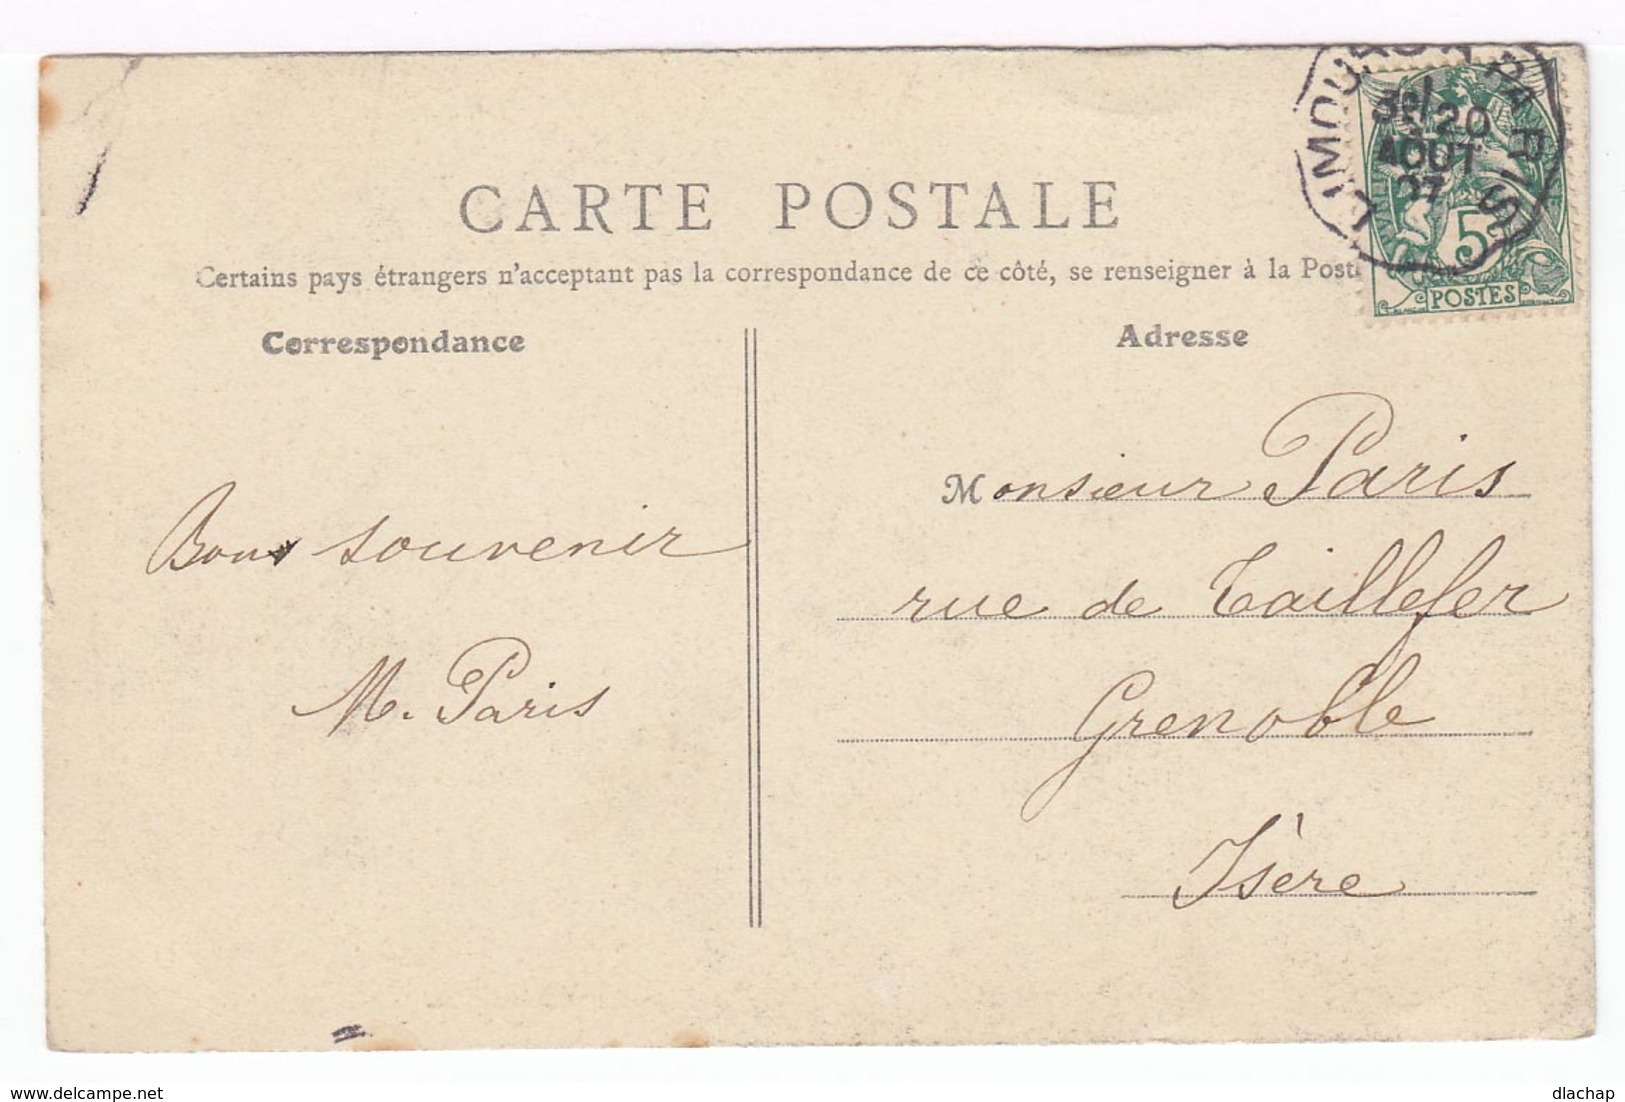 CARTE POSTALE
Certains pays étrangers n'acceptant pas la correspondance de ce côté, se renseigner à la Post
Correspondance
Adresse
LIMOURS A PARIS
3e/
20
AOUT
07
5
POSTES
Monsieur Paris
rue de Taillefer
Grenoble
Isère
Bons souvenir
M. Paris
www.delcampe.net
dlachap